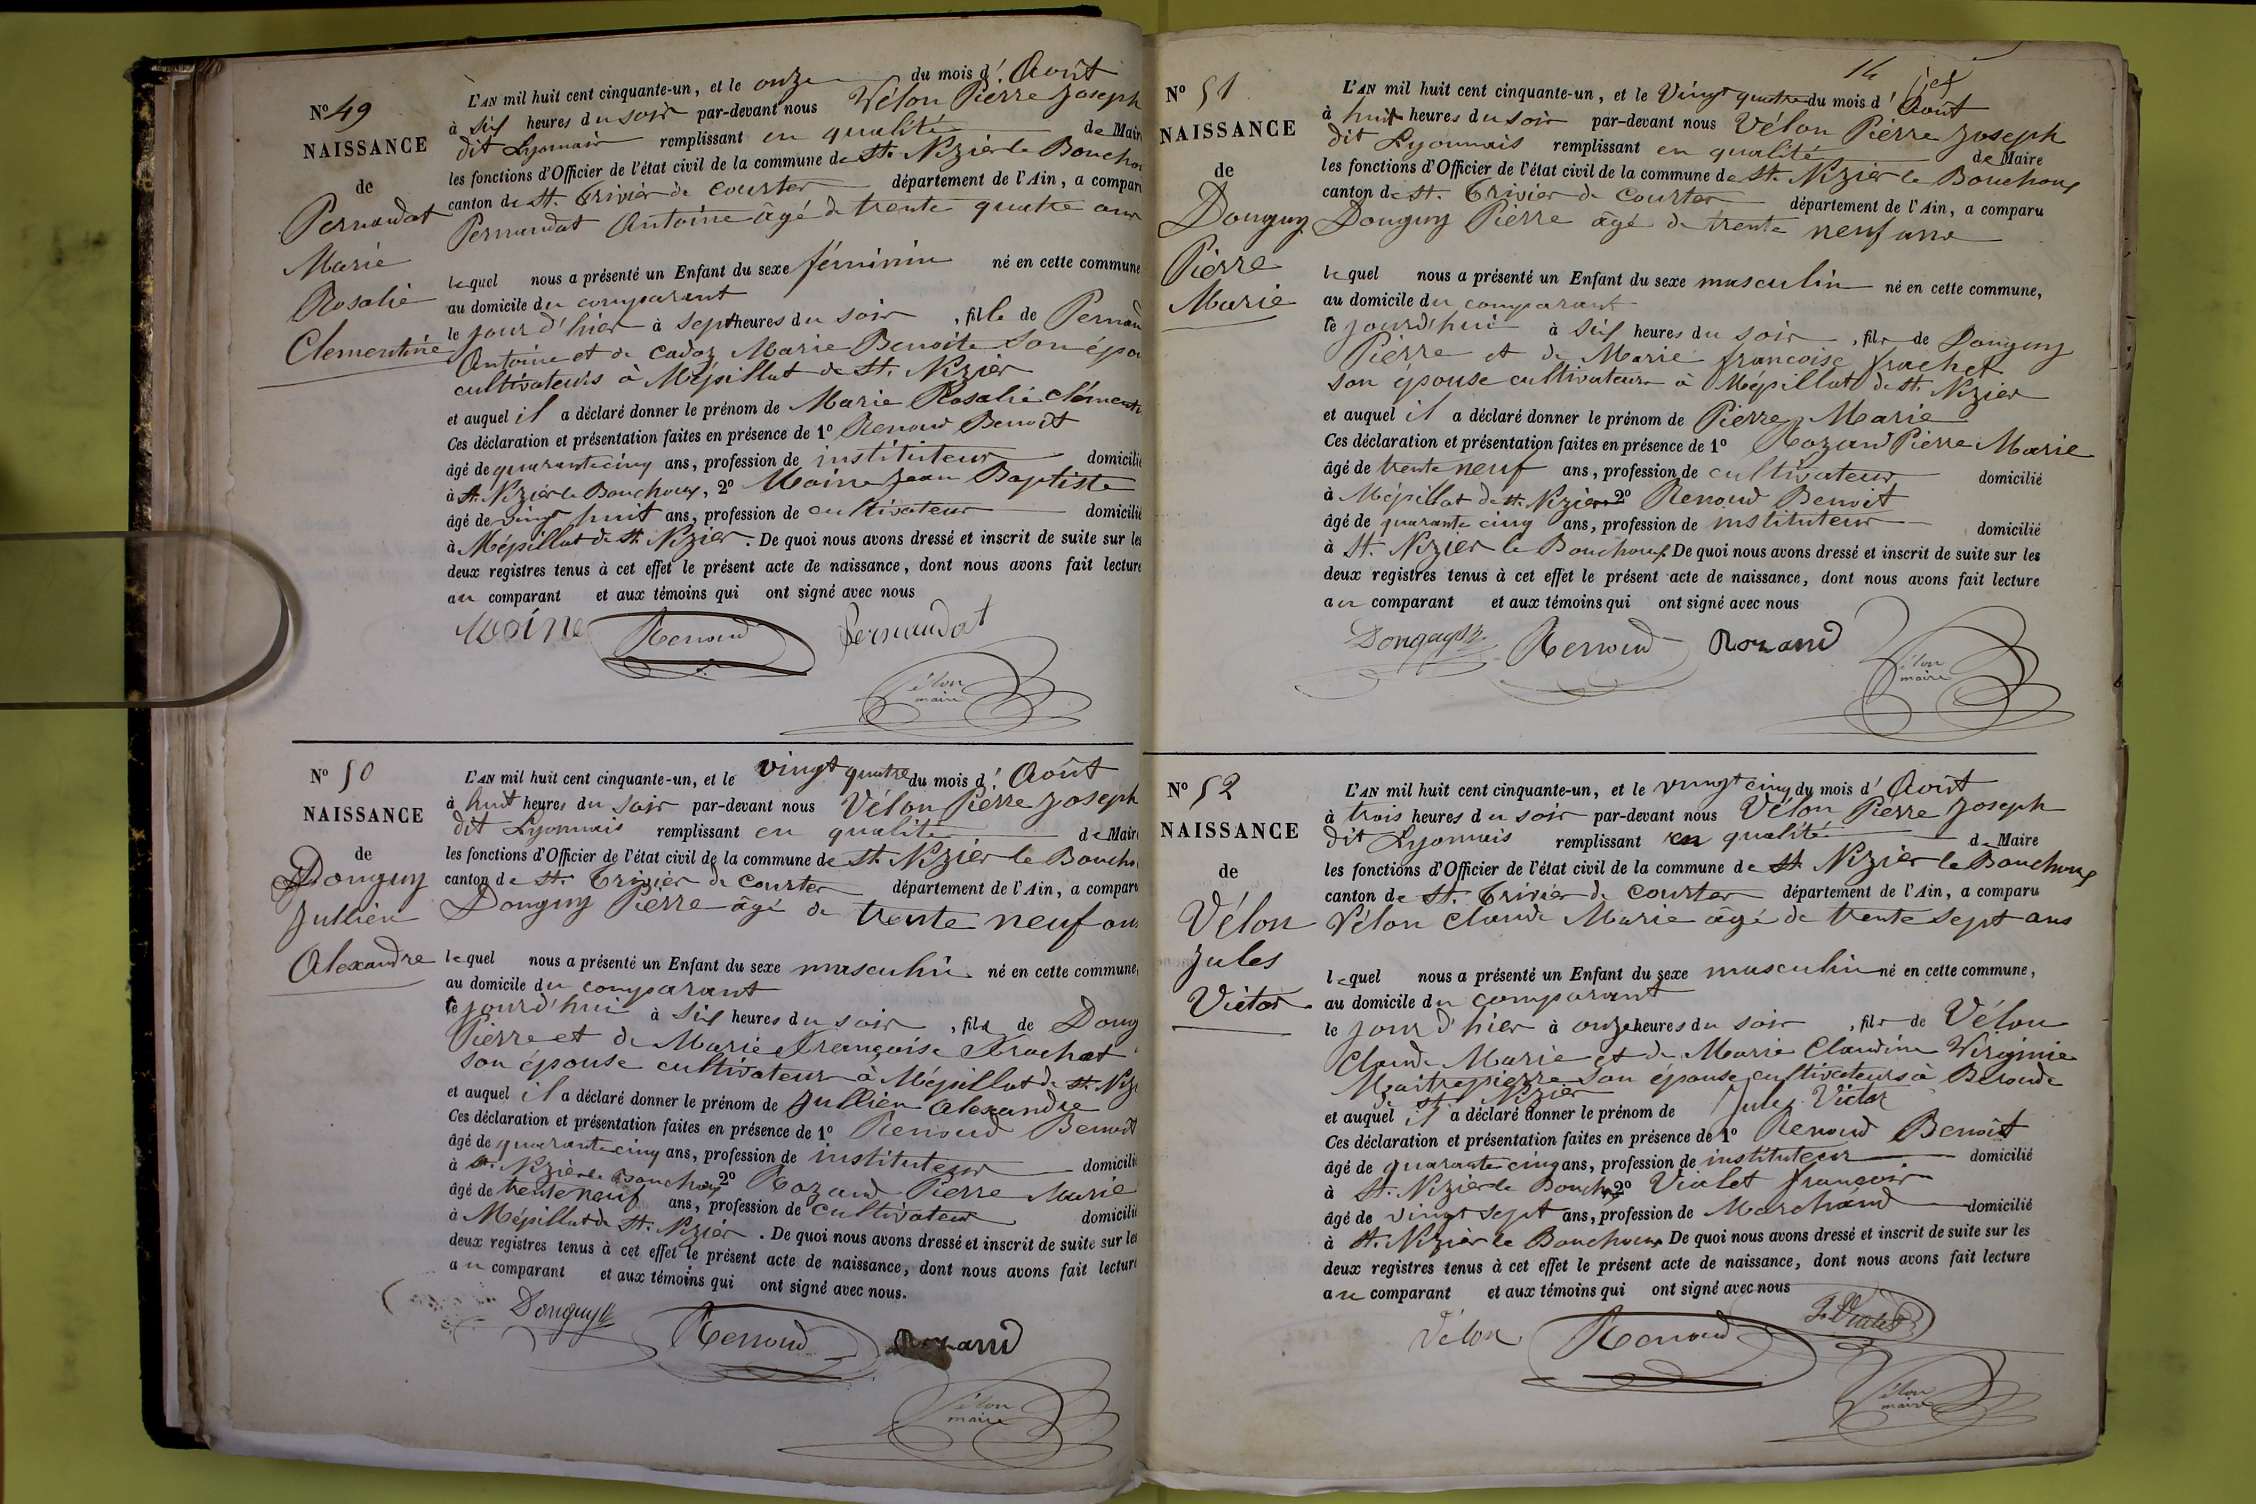 N° 49
NAISSANCE
de
Pernaudat
Marie
Rosalie
Clementine
L'AN mil huit cent cinquante-un, et le onze du mois d'Août
à six heures du soir par-devant nous Vélon Pierre Joseph
dit Lyonnais remplissant en qualité de Maire
les fonctions d'Officier de l'état civil de la commune de St. Nizier le Bouchoux
canton de St. Trivier de Courtes département de l'Ain, a comparu
Pernaudat Antoine âgé de trente quatre ans
lequel nous a présenté un Enfant du sexe féminin né en cette commune
au domicile du comparant
le jour d'hier à sept heures du soir, fille de Pernau
Antoine et de Cadoz Marie Benoite son épou
cultivateurs à Mépillat de St. Nizier
et auquel il a déclaré donner le prénom de Marie Rosalie Clémenti
Ces déclaration et présentation faites en présence de 1° Renoud Benoît
âgé de quarante cinq ans, profession de instituteur domicilié
à St. Nizier le Bouchoux, 2° Moine Jean Baptiste
âgé de vingt huit ans, profession de cultivateur domicilié
à Mépillat de St. Nizier. De quoi nous avons dressé et inscrit de suite sur les
deux registres tenus à cet effet le présent acte de naissance, dont nous avons fait lecture
au comparant et aux témoins qui ont signé avec nous
Moine Renoud Pernaudat
Vélon
maire
N° 50
NAISSANCE
de
Donguy
Jullien
Alexandre
L'AN mil huit cent cinquante-un, et le vingt quatre du mois d'Août
à huit heures du soir par-devant nous Vélon Pierre Joseph
dit Lyonnais remplissant en qualité de Maire
les fonctions d'Officier de l'état civil de la commune de St. Nizier le Boucho
canton de St. Trivier de Courtes département de l'Ain, a comparu
Donguy Pierre âgé de trente neuf ans
lequel nous a présenté un Enfant du sexe masculin né en cette commune,
au domicile du comparant
le jourd'hui à six heures du soir, fils de Dong
Pierre et de Marie Françoise Frachet
son épouse cultivateurs à Mépillat de St. Nizi
et auquel il a déclaré donner le prénom de Jullien Alexandre
Ces déclaration et présentation faites en présence de 1° Renoud Benoît
âgé de quarante cinq ans, profession de instituteur domicilié
à St. Nizier le Bouchoux 2° Rozand Pierre Marie
âgé de trente neuf ans, profession de cultivateur domicilié
à Mépillat de St. Nizier. De quoi nous avons dressé et inscrit de suite sur les
deux registres tenus à cet effet le présent acte de naissance, dont nous avons fait lecture
au comparant et aux témoins qui ont signé avec nous.
Donguy Renoud Rozand
Vélon
maire
14
N° 51
NAISSANCE
de
Donguy
Pierre
Marie
L'AN mil huit cent cinquante-un, et le Vingt quatre du mois d'Août
à huit heures du soir par-devant nous Vélon Pierre Joseph
dit Lyonnais remplissant en qualité de Maire
les fonctions d'Officier de l'état civil de la commune de St. Nizier le Bouchoux
canton de St. Trivier de Courtes département de l'Ain, a comparu
Donguy Pierre âgé de trente neuf ans
lequel nous a présenté un Enfant du sexe masculin né en cette commune,
au domicile du comparant
le jourd'hui à six heures du soir, fils de Donguy
Pierre et de Marie françoise frachet
son épouse cultivateurs à Mépillat de St. Nizier
et auquel il a déclaré donner le prénom de Pierre Marie
Ces déclaration et présentation faites en présence de 1° Rozand Pierre Marie
âgé de trente neuf ans, profession de cultivateur domicilié
à Mépillat de St. Nizier 2° Renoud Benoit
âgé de quarante cinq ans, profession de instituteur domicilié
à St. Nizier le Bouchoux. De quoi nous avons dressé et inscrit de suite sur les
deux registres tenus à cet effet le présent acte de naissance, dont nous avons fait lecture
au comparant et aux témoins qui ont signé avec nous
Donguy Renoud Rozand
Vélon
maire
N° 52
NAISSANCE
de
Vélon
Jules
Victor
L'AN mil huit cent cinquante-un, et le vingt cinq du mois d'Août
à trois heures du soir par-devant nous Vélon Pierre Joseph
dit Lyonnais remplissant en qualité de Maire
les fonctions d'Officier de l'état civil de la commune de St. Nizier le Bouchoux
canton de St. Trivier de Courtes département de l'Ain, a comparu
Vélon Claude Marie âgé de trente sept ans
lequel nous a présenté un Enfant du sexe masculin né en cette commune,
au domicile du comparant
le jour d'hier à onze heures du soir, fils de Vélon
Claude Marie et de Marie Claudine Virginie
Maitrepierre son épouse cultivateurs à Beroude
de St. Nizier
et auquel il a déclaré donner le prénom de Jules Victor
Ces déclaration et présentation faites en présence de 1° Renoud Benoît
âgé de quarante cinq ans, profession de instituteur domicilié
à St. Nizier le Bouchoux 2° Vialet françois
âgé de vingt sept ans, profession de Marchand domicilié
à St. Nizier le Bouchoux. De quoi nous avons dressé et inscrit de suite sur les
deux registres tenus à cet effet le présent acte de naissance, dont nous avons fait lecture
au comparant et aux témoins qui ont signé avec nous
Vélon Renoud F. Vialet
Vélon
maire